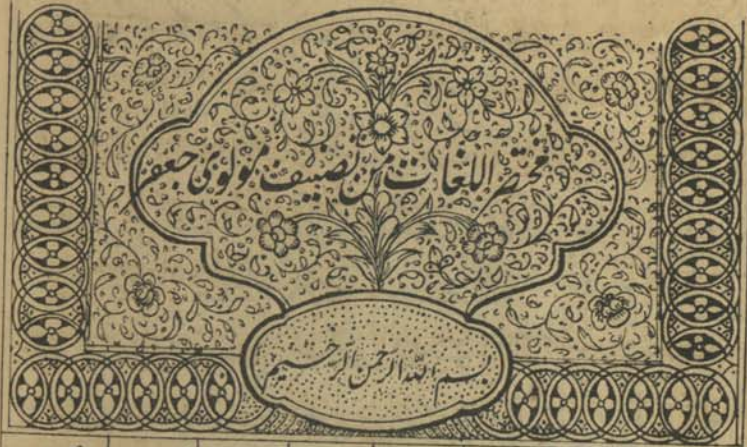 مختصر اللغات من تصنیف مولوی جعفر
بسم الله الرحمن الرحیم